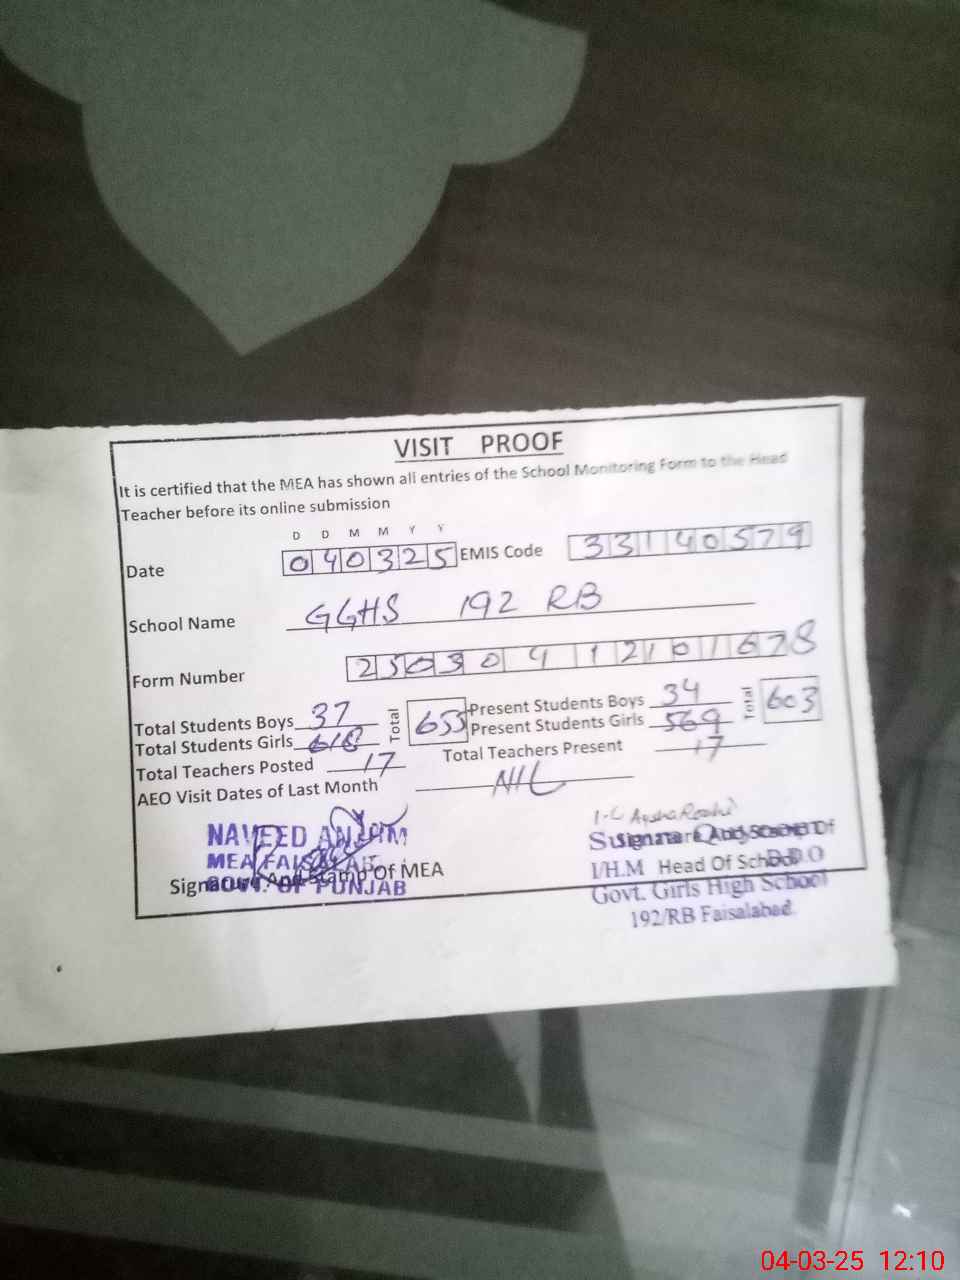 VISIT PROOF
It is certified that the MEA has shown all entries of the School Monitoring Form to the Head
Teacher before its online submission
D D M M Y Y
Date 040325 EMIS Code 33140579
School Name GGHS 192 RB
Form Number
Total Students Boys 37 Total 655 Present Students Boys 34 Total 603
Total Students Girls 618 Present Students Girls 569
Total Teachers Posted 17 Total Teachers Present 17
AEO Visit Dates of Last Month NIL
NAVEED ANJUM
MEA FAISALABAD
GOVT. OF PUNJAB
Signature And Stamp Of MEA
Signature And Stamp Of
I/H.M Head Of School D.D.O
Govt. Girls High School
192/RB Faisalabad.
04-03-25 12:10